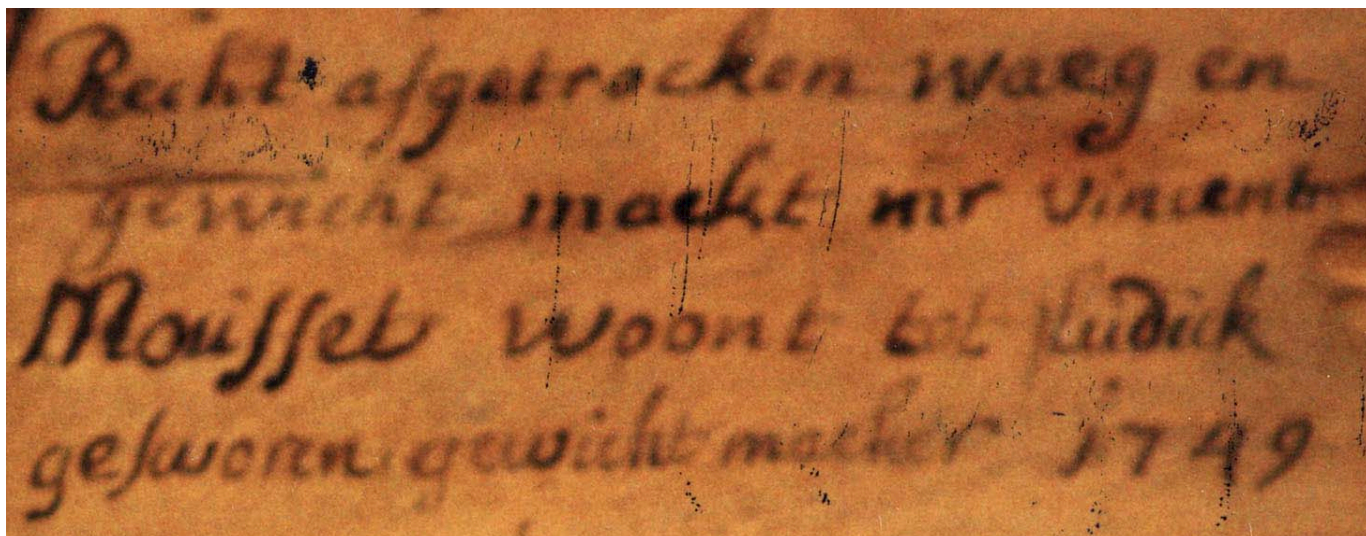 Recht afgetrocken waeg en
gewicht maekt mr Vincent
Mousset woont tot ludick
gesworen gewicht maeker 1749